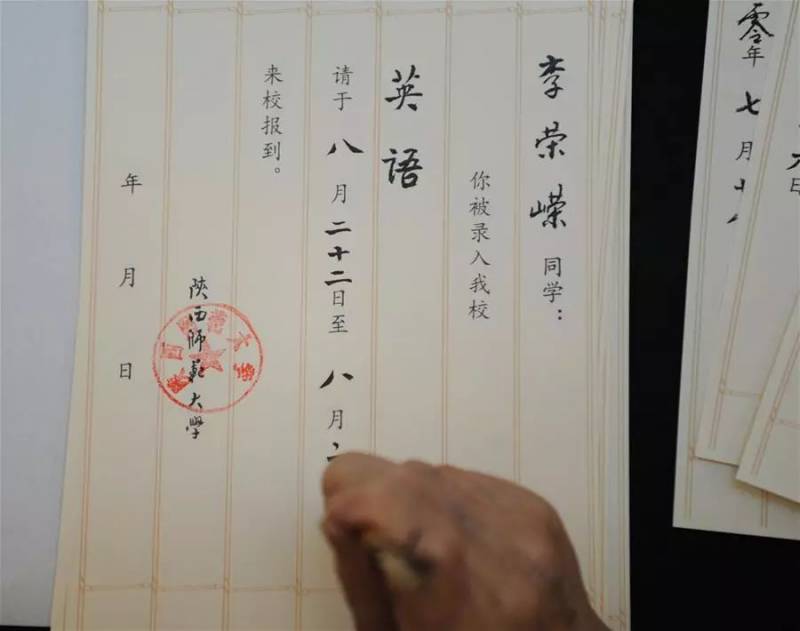 李荣嵘同学：
你被录入我校
英语
请于八月二十二日至八月二
来校报到。
陕西师范大學
年月日
零年七月十八
六日